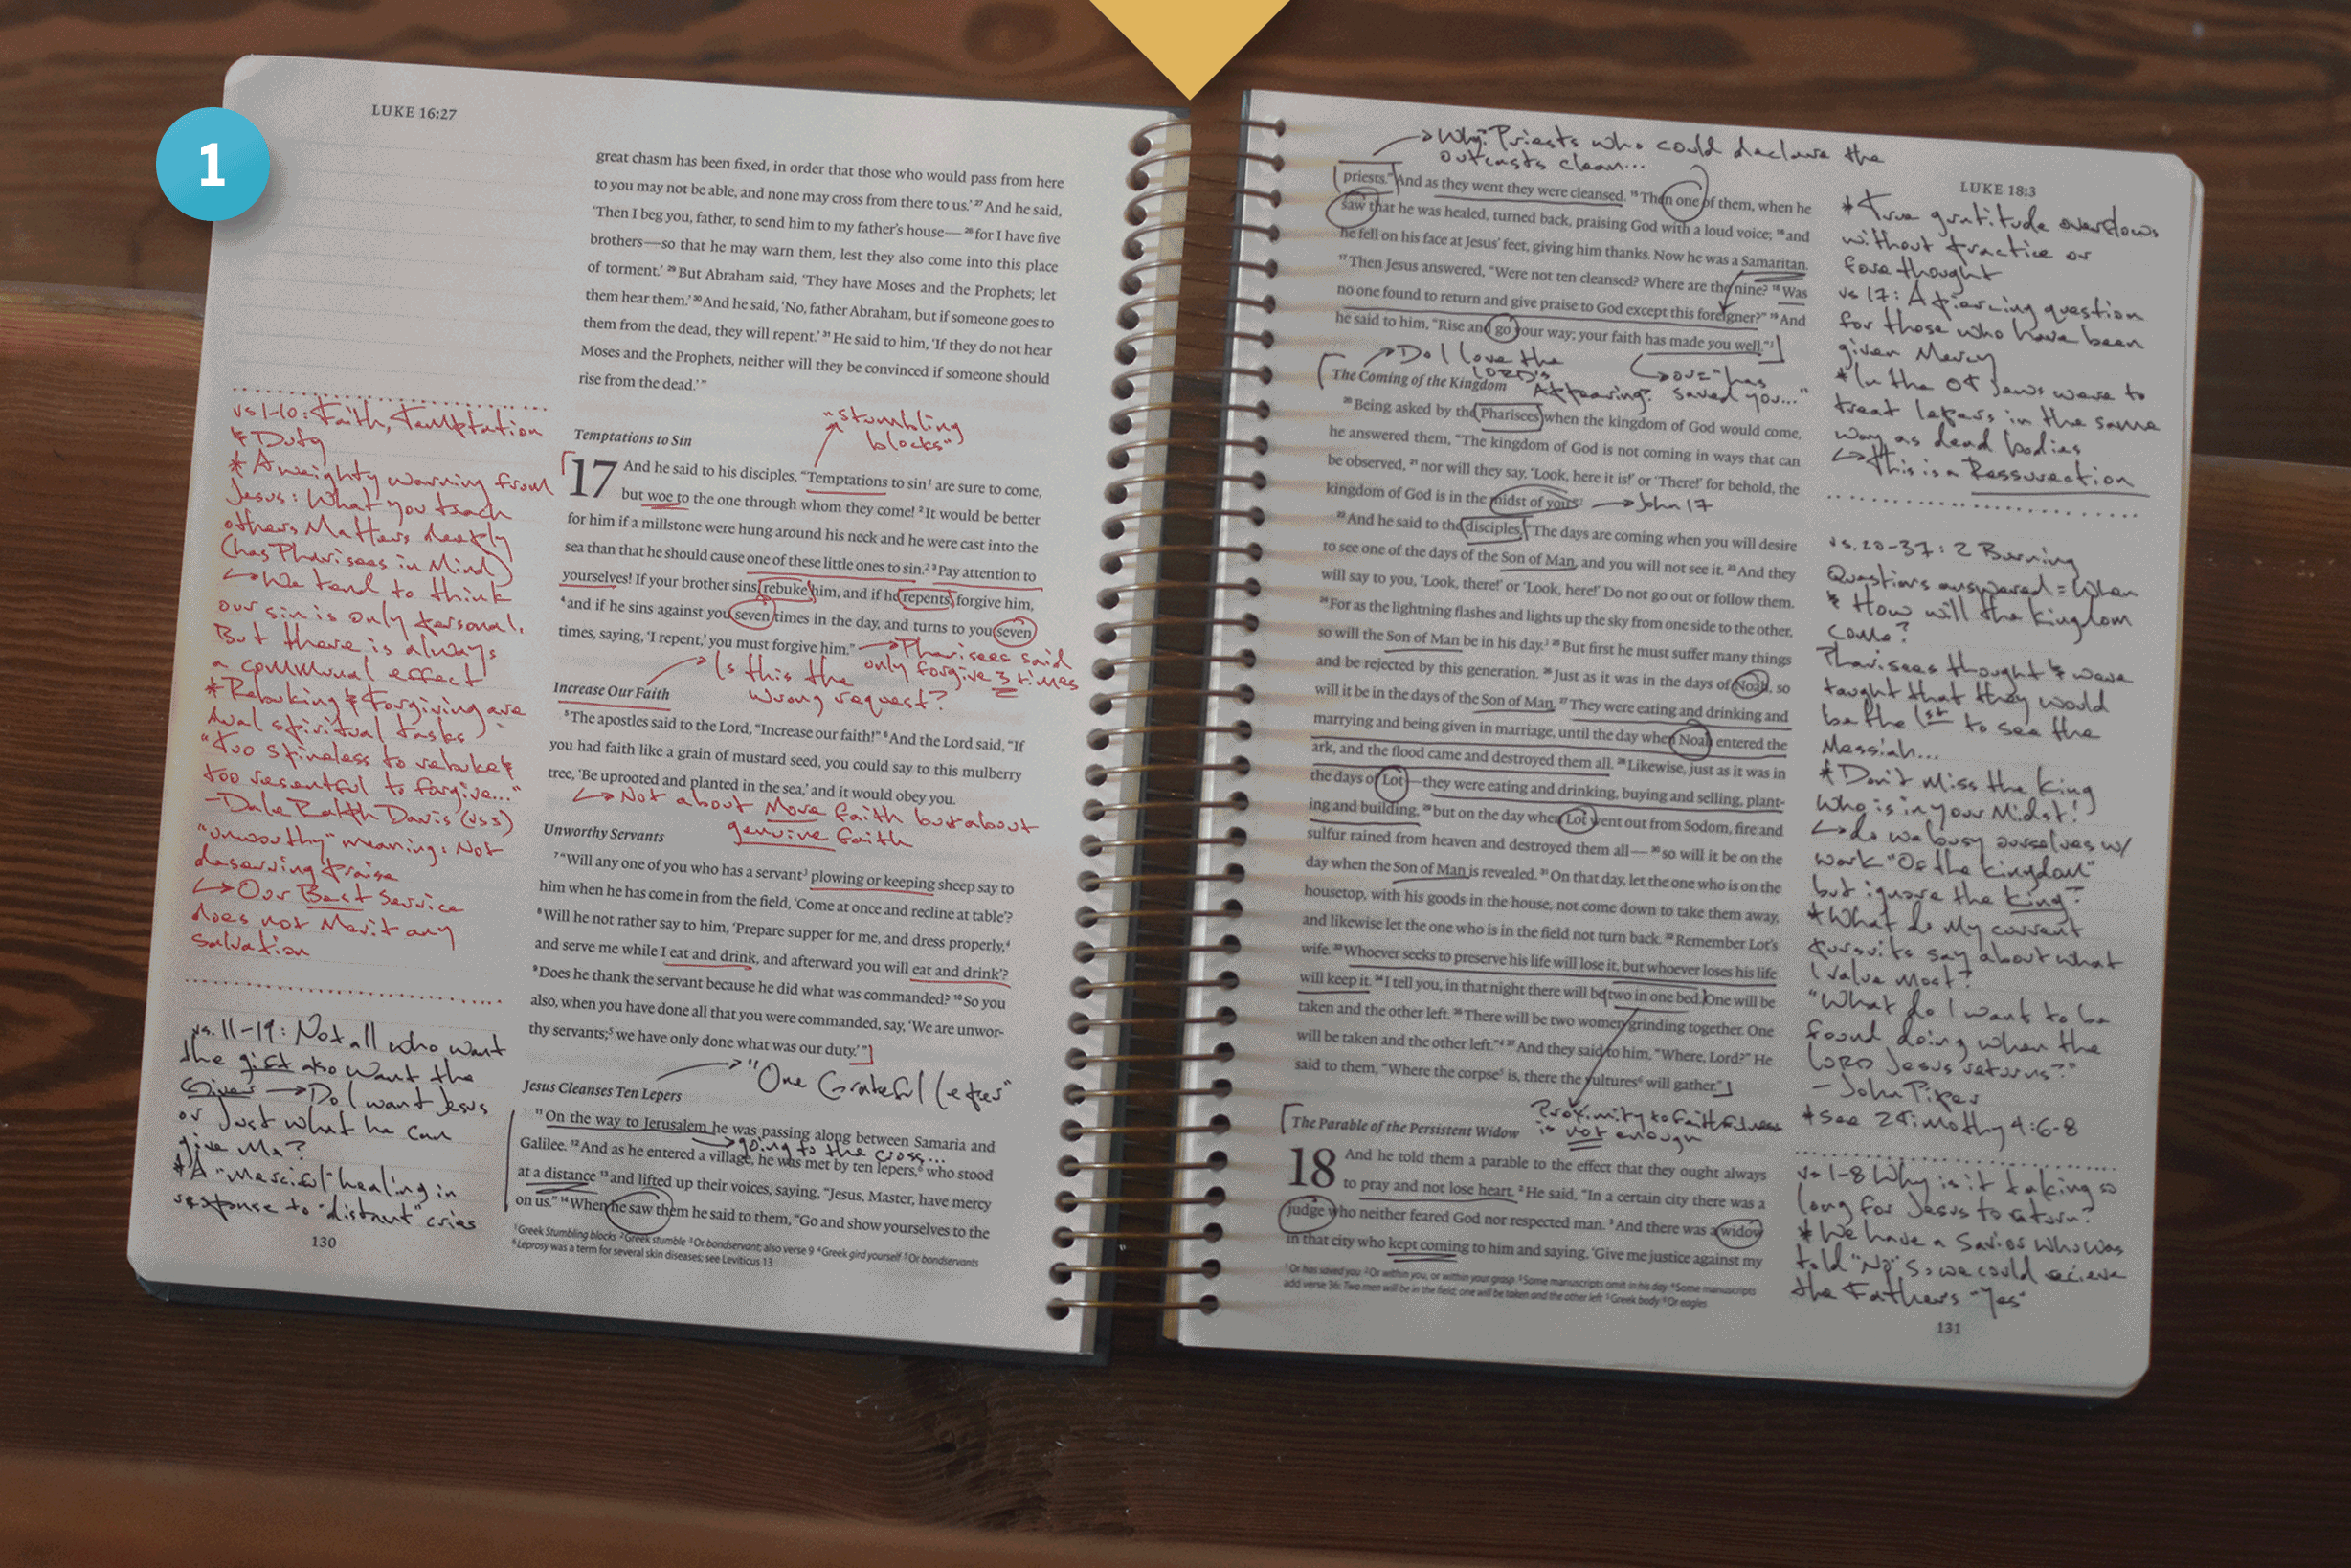 1
LUKE 16:27
great chasm has been fixed, in order that those who would pass from here
to you may not be able, and none may cross from there to us.’ 27 And he said,
‘Then I beg you, father, to send him to my father’s house— 28 for I have five
brothers—so that he may warn them, lest they also come into this place
of torment.’ 29 But Abraham said, ‘They have Moses and the Prophets; let
them hear them.’ 30 And he said, ‘No, father Abraham, but if someone goes to
them from the dead, they will repent.’ 31 He said to him, ‘If they do not hear
Moses and the Prophets, neither will they be convinced if someone should
rise from the dead.’”
"stumbling
blocks"
Temptations to Sin
17 And he said to his disciples, “Temptations to sin1 are sure to come,
but woe to the one through whom they come! 2 It would be better
for him if a millstone were hung around his neck and he were cast into the
sea than that he should cause one of these little ones to sin.2 3 Pay attention to
yourselves! If your brother sins, rebuke him, and if he repents, forgive him,
4 and if he sins against you seven times in the day, and turns to you seven
times, saying, ‘I repent,’ you must forgive him.”
Pharisees said
only forgive 3 times
Is this the
wrong request?
Increase Our Faith
5 The apostles said to the Lord, “Increase our faith!” 6 And the Lord said, “If
you had faith like a grain of mustard seed, you could say to this mulberry
tree, ‘Be uprooted and planted in the sea,’ and it would obey you.
Not about More faith but about
genuine faith
Unworthy Servants
7 “Will any one of you who has a servant3 plowing or keeping sheep say to
him when he has come in from the field, ‘Come at once and recline at table’?
8 Will he not rather say to him, ‘Prepare supper for me, and dress properly,4
and serve me while I eat and drink, and afterward you will eat and drink’?
9 Does he thank the servant because he did what was commanded? 10 So you
also, when you have done all that you were commanded, say, ‘We are unwor-
thy servants;5 we have only done what was our duty.’”
"One Grateful Leper"
Jesus Cleanses Ten Lepers
11 On the way to Jerusalem he was passing along between Samaria and
going to the cross...
Galilee. 12 And as he entered a village, he was met by ten lepers,6 who stood
at a distance 13 and lifted up their voices, saying, “Jesus, Master, have mercy
on us.” 14 When he saw them he said to them, “Go and show yourselves to the
1 Greek Stumbling blocks 2 Greek stumble 3 Or bondservant; also verse 9 4 Greek gird yourself 5 Or bondservants
6 Leprosy was a term for several skin diseases; see Leviticus 13
vs 1-10: Faith, Temptation
& Duty
* A weighty warning from
Jesus: What you teach
others Matters deeply
(has Pharisees in Mind)
We tend to think
our sin is only personal.
But there is always
a communal effect
* Rebuking & Forgiving are
dual spiritual tasks
"too spineless to rebuke &
too resentful to forgive..."
-Dale Ralph Davis (vs 3)
"unworthy" meaning: Not
deserving praise
Our Best Service
does not Merit any
Salvation
vs. 11-19: Not all who want
the gift also want the
Giver → Do I want Jesus
or Just what he can
give Me?
* A "Merciful" healing in
response to "distant" cries
130
Why? Priests who could declare the
outcasts clean...
priests.” And as they went they were cleansed. 15 Then one of them, when he
saw that he was healed, turned back, praising God with a loud voice; 16 and
he fell on his face at Jesus’ feet, giving him thanks. Now he was a Samaritan.
17 Then Jesus answered, “Were not ten cleansed? Where are the nine? 18 Was
no one found to return and give praise to God except this foreigner?” 19 And
he said to him, “Rise and go your way; your faith has made you well.”1
Do I love the
LORD's
Appearing?
or="has
saved you..."
The Coming of the Kingdom
20 Being asked by the Pharisees when the kingdom of God would come,
he answered them, “The kingdom of God is not coming in ways that can
be observed, 21 nor will they say, ‘Look, here it is!’ or ‘There!’ for behold, the
kingdom of God is in the midst of you.”2
John 17
22 And he said to the disciples, “The days are coming when you will desire
to see one of the days of the Son of Man, and you will not see it. 23 And they
will say to you, ‘Look, there!’ or ‘Look, here!’ Do not go out or follow them.
24 For as the lightning flashes and lights up the sky from one side to the other,
so will the Son of Man be in his day.3 25 But first he must suffer many things
and be rejected by this generation. 26 Just as it was in the days of Noah, so
will it be in the days of the Son of Man. 27 They were eating and drinking and
marrying and being given in marriage, until the day when Noah entered the
ark, and the flood came and destroyed them all. 28 Likewise, just as it was in
the days of Lot—they were eating and drinking, buying and selling, plant-
ing and building, 29 but on the day when Lot went out from Sodom, fire and
sulfur rained from heaven and destroyed them all— 30 so will it be on the
day when the Son of Man is revealed. 31 On that day, let the one who is on the
housetop, with his goods in the house, not come down to take them away,
and likewise let the one who is in the field not turn back. 32 Remember Lot’s
wife. 33 Whoever seeks to preserve his life will lose it, but whoever loses his life
will keep it. 34 I tell you, in that night there will be two in one bed. One will be
taken and the other left. 35 There will be two women grinding together. One
will be taken and the other left.”4 37 And they said to him, “Where, Lord?” He
said to them, “Where the corpse5 is, there the vultures6 will gather.”
Proximity to Faithfulness
is not enough
The Parable of the Persistent Widow
18 And he told them a parable to the effect that they ought always
to pray and not lose heart. 2 He said, “In a certain city there was a
judge who neither feared God nor respected man. 3 And there was a widow
in that city who kept coming to him and saying, ‘Give me justice against my
1 Or has saved you 2 Or within you, or within your grasp 3 Some manuscripts omit in his day 4 Some manuscripts
add verse 36: Two men will be in the field; one will be taken and the other left 5 Greek body 6 Or eagles
LUKE 18:3
* True gratitude overflows
without practice or
forethought
vs 17: A piercing question
for those who have been
given Mercy
* In the OT Jews were to
treat lepers in the same
way as dead bodies
This is a Ressurection
vs. 20-37: 2 Burning
Questions answered = When
& How will the kingdom
come?
Pharisees thought & were
taught that they would
be the 1st to see the
Messiah...
* Don't Miss the King
Who is in your Midst!
do we busy ourselves w/
work "Of the kingdom"
but ignore the King?
* What do My current
pursuits say about what
I value Most?
"What do I want to be
found doing when the
LORD Jesus returns?"
- John Piper
* See 2 Timothy 4:6-8
vs 1-8 Why is it taking so
long for Jesus to return?
* We have a Savior who was
told "No" so we could recieve
the Fathers "Yes"
131